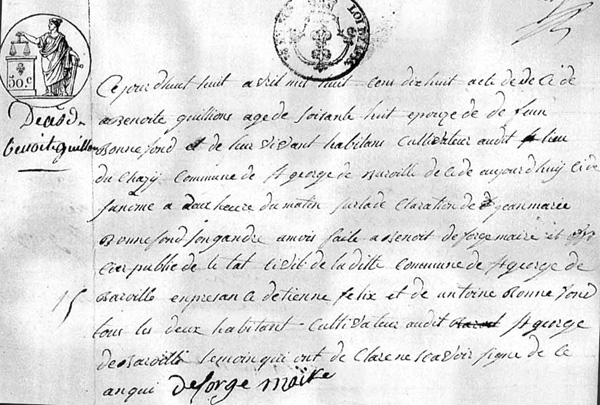 50 c
Deces de
benoit guillon
Ce jourdhuit huit avril mil huit cens dix huit acte de de ce de
Benoite guillions age de soisante huit epouze de de fun
Bonnefond et de leur vivant habitans Cultivateur audit lieu
du Chazy Commune de St george de Baroille de Ce de aujourdhuy Ce de
a heure du matin sur la de Claration de jean marie
Bonnefond son gandre a mois faite a Benoit desforge maire et
Cier public de le tat Civil de la ditte Commune de St george de
Baroille en presan Ce detienne felix et de antoine Bonnefond
15
tous les deux habitant Cultivateur audit St george
de Baroille temoin qui ont de Clare ne scavoir signe de Ce
anqui desforge maire